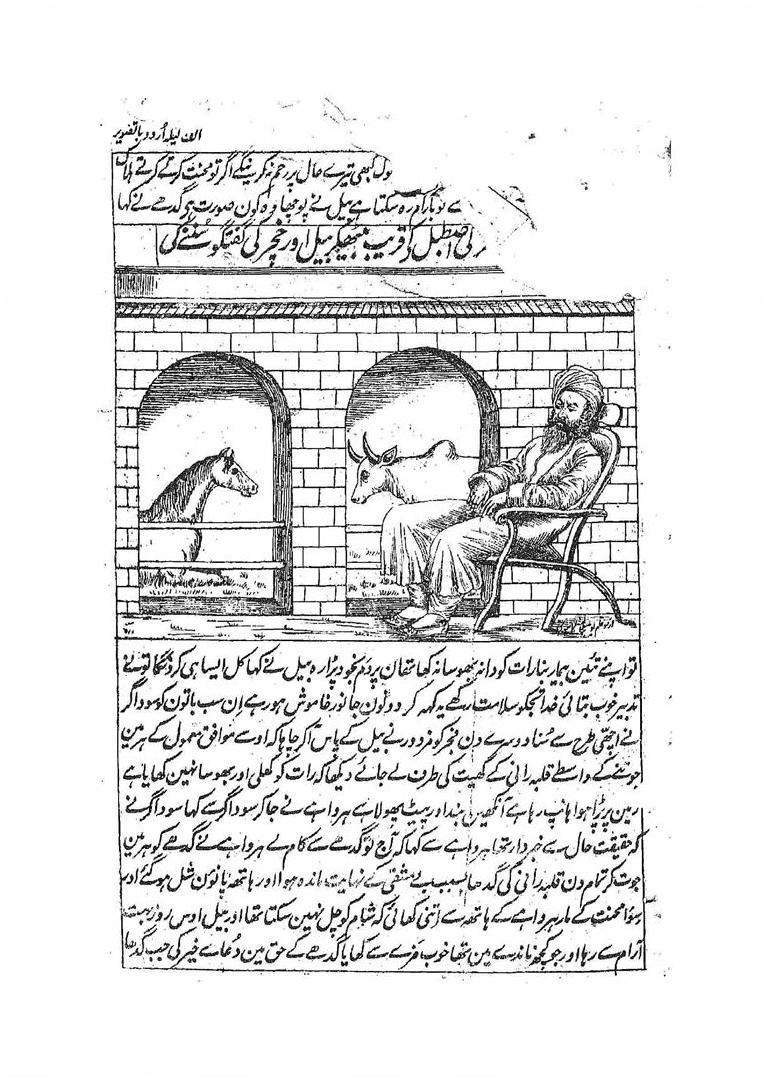 الف لیلہ اُردو باتصویر
کبھی تیرے حال پر رحم نہ کرینگے اگر تو محنت کرتے کرتے
رہ سکتا ہے بیل نے پوچھا وہ کون صورت ہی گدھے نے کہا
اصطبل کے قریب بیٹھکر بیل اور خچر کی گفتگو سننے کی
تو اپنے تئین بیمار بنا رات کو دانہ بھوسا نہ کھا تھان پر دم بخود پڑا رہ بیل نے کہا کل ایسا ہی کرونگا تونے
تدبیر خوب بتائی خدا تجکو سلامت رکھے یہ کہہ کر دونون جانور خاموش ہو رہے اِن سب باتون کو سوداگر
نے اچھی طرح سے سُنا دوسرے دن فجر کو مزدور نے بیل کے پاس آکر چاہا کہ اوسے موافق معمول کے ہر مین
جوتنے کے واسطے قلبہ رانی کے کھیت کی طرف لے جائے دیکھا کہ رات کو کھلی اور بھوسا نہین کھایا ہے
زمین پر پڑا ہوا ہانپ رہا ہے آنکھین بند اور پیٹ پھولا ہے ہرواہے نے جا کر سوداگر سے کہا سوداگر نے
کہ حقیقت حال سے خبردار تھا ہرواہے سے کہا کہ آج تو گدھے سے کام لے ہرواہے نے گدھے کو ہر مین
جوت کر تمام دن قلبہ رانی کی گدھا بسبب بے مشقی کے نہایت ماندہ ہوا اور ہاتھ پانون شل ہو گئے اور
سوا محنت کے مار ہرواہے کے ہاتھ سے اتنی کھائی کہ شام کو چل نہین سکتا تھا اور بیل اوس روز بہت
آرام سے رہا اور جو کچھ ناند مین تھا خوب مزے سے کھایا گدھے کے حق مین دُعاے خیر کی جب گدھا